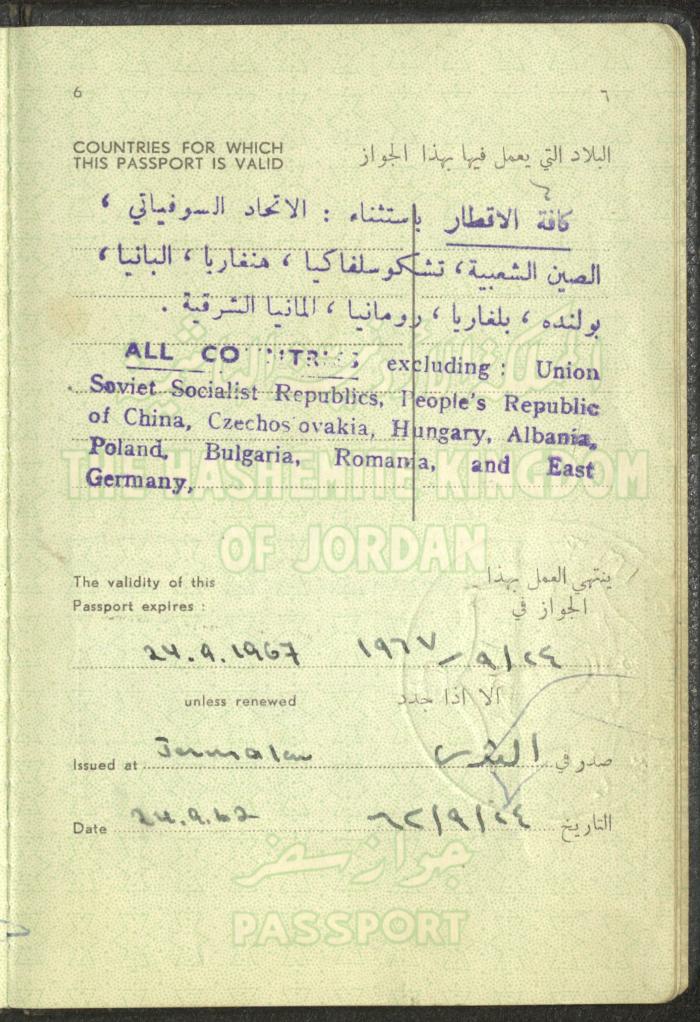 6
٦
COUNTRIES FOR WHICH
THIS PASSPORT IS VALID
البلاد التي يعمل فيها بهذا الجواز
كافة الاقطار باستثناء : الاتحاد السوفياتي ،
الصين الشعبية ، تشكوسلفاكيا ، هنغاريا ، البانيا ،
بولنده ، بلغاريا ، رومانيا ، المانيا الشرقية .
ALL COUNTRIES excluding : Union
Soviet Socialist Republics, People's Republic
of China, Czechoslovakia, Hungary, Albania,
Poland, Bulgaria, Romania, and East
Germany,
THE HASHEMITE KINGDOM
OF JORDAN
The validity of this
Passport expires :
ينتهي العمل بهذا
الجواز في
24.9.1967
٢٤/٩/١٩٦٧
unless renewed
الا اذا جدد
Issued at Jerusalem
صدر في القدس
Date 24.9.62
التاريخ ٢٤/٩/٦٢
جواز سفر
PASSPORT